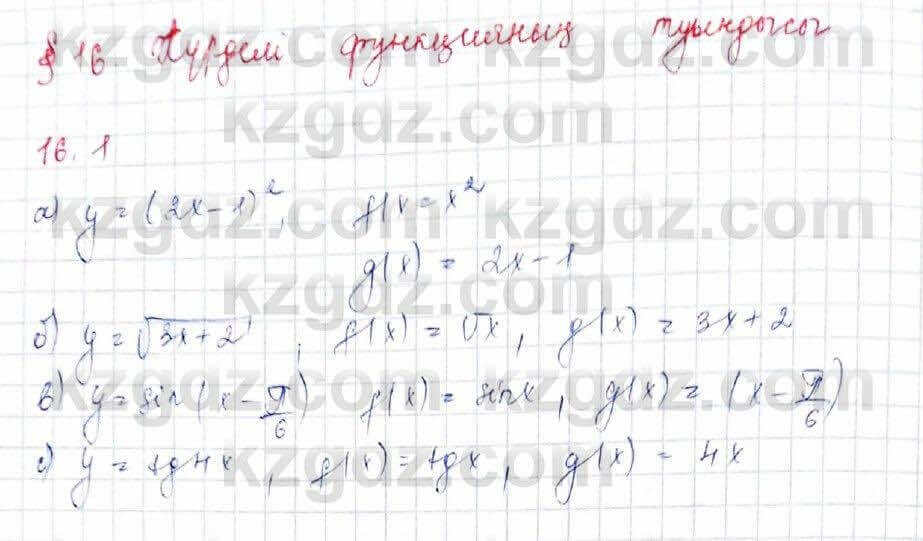 § 16. Күрделі функцияның туындысы
16.1
а) y = (2x-1)², f(x = x²
g(x) = 2x-1
б) y = √3x+2, f(x) = √x, g(x) = 3x+2
в) y = sin(x - π/6) f(x) = sinx, g(x) = (x - π/6)
с) y = tg4x, f(x) = tgx, g(x) = 4x
kzgdz.com
kzgdz.com
kzgdz.com
kzgdz.com
kzgdz.com
kzgdz.com